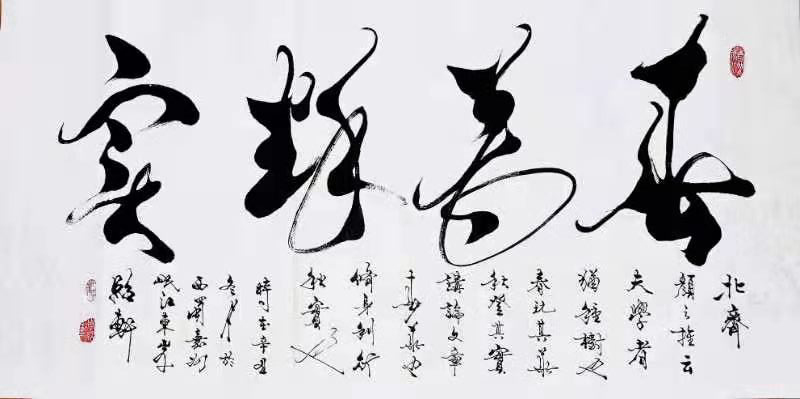 春華秋實
北齊
顏之推云
夫學者
猶種樹也
春玩其華
秋登其實
講論文章
春華也
脩身利行
秋實也
時 辛丑
冬月於
西蜀嘉州
岷江東岸
軒